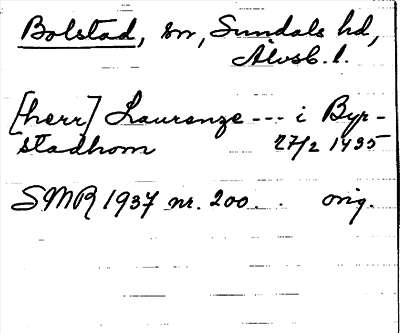 Bolstad, sn, Sundals hd,
Älvsb. l.
[herr] Lauranze --- i Byr-
stadhom 27/2 1435
SMR 1937 nr. 200. . orig.